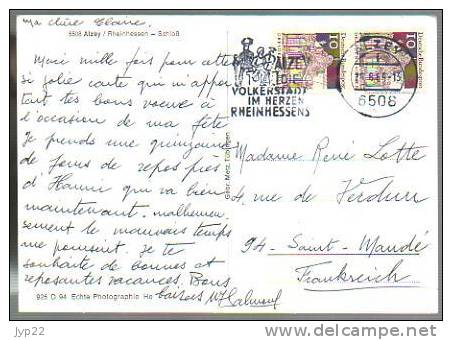 Ma chère Claire,
6508 Alzey / Rheinhessen — Schloß
Merci mille fois pour cette
si jolie carte qui m'appor
tent tes bons voeux à
l'occasion de ma fête
Je prends une quinzaine
de jours de repos près
d' qui va bien
maintenant. malheureu
sement le mauvais temps
me poursuit. Je te
souhaite de bonnes et
reposantes vacances. Bons
baisers
925 D 94 Echte Photographie He
Gebr. Metz, Tübingen
ALZEY
DIE
VOLKERSTADT
IM HERZEN
RHEINHESSENS
ALZEY
-13
6508
10
Deutsche Bundespost
10
Deutsche Bundespost
Madame René Lotte
4, rue de Verdun
94 - Saint-Mandé
Frankreich
jpy22
http://www.delcampe.net